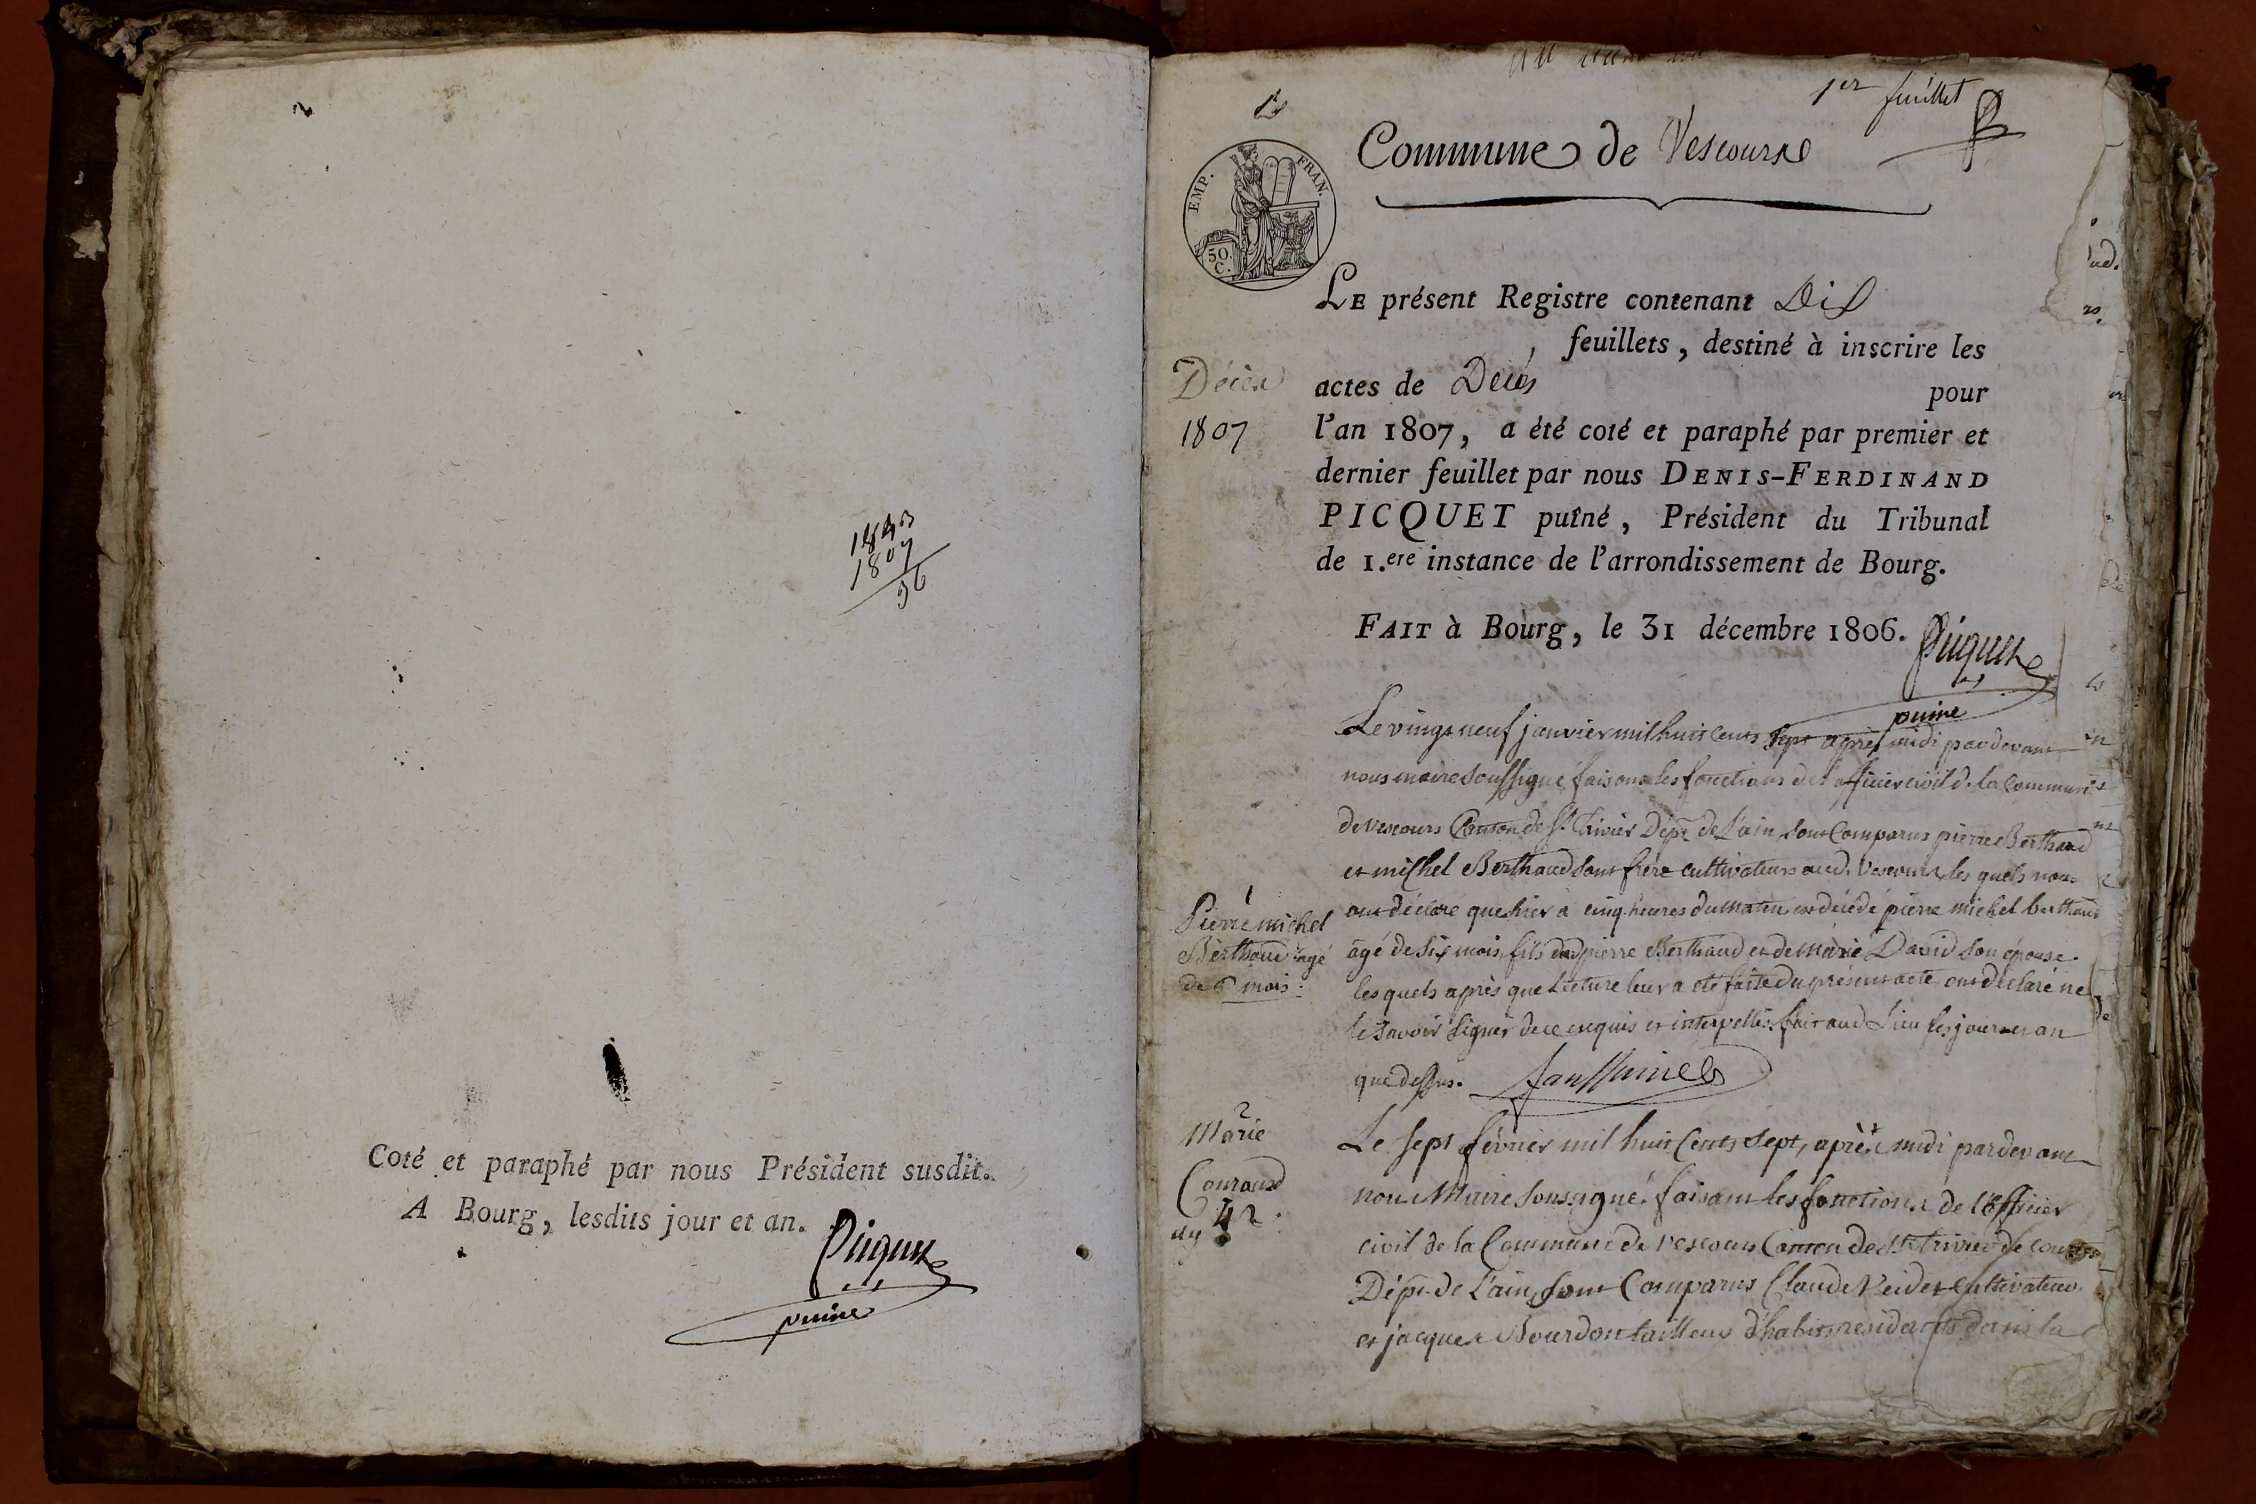 1843
1807
36
Coté et paraphé par nous Président susdit.
A Bourg, lesdits jour et an.
Picquet
puiné
1er feuillet
Commune de Vescours
EMP. FRAN.
50.
C.
LE présent Registre contenant Dix
feuillets, destiné à inscrire les
Décès
actes de Decés pour
1807
l'an 1807, a été coté et paraphé par premier et
dernier feuillet par nous DENIS-FERDINAND
PICQUET puîné, Président du Tribunal
de 1.ere instance de l'arrondissement de Bourg.
FAIT à Bourg, le 31 décembre 1806.
Picquet
puiné
Le vingt neuf janvier mil huit cents sept après midi pardevant
nous maire soussigné faisant les fonctions de l'officier civil de la Commune
de Vescours Canton de St. Trivier Dépt. de L'ain, sont Comparus pierre Berthaud
et michel Berthaud sont frère cultivateurs aud. Vescours les quels nous
1
Pierre michel
Berthaud agé
de 6 mois.
ont déclaré que hier à cinq heures du matin est décédé pierre michel berthaud
agé de six mois, fils dud pierre Berthaud et de Marie David son épouse.
les quels après que Lecture leur a eté faite du présent acte ont déclaré ne
le savoir signer de ce enquis et interpellés. fait aud Lieu les jour et an
que dessus.
2
Marie
Couraud
42
Le sept février mil huit Cents sept, après midi pardevant
nous Maire soussigné faisant les fonctions de l'Officier
civil de la Commune de vescours Canton de St. trivier de courtes
Dépt. de L'ain, sont Comparus Claude Veider Cultivateur
et jacques Bourdon tailleur d'habits residants dans la